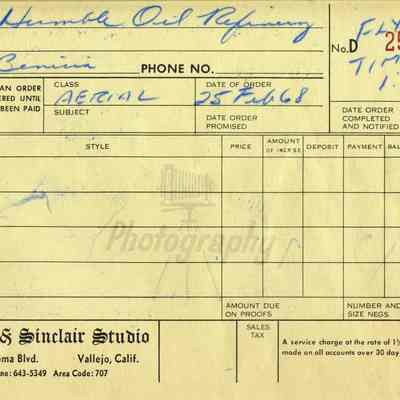 Humble Oil Refinery
No. D 25
FLY
Benicia PHONE NO.
TIM
AN ORDER
ERED UNTIL
BEEN PAID
CLASS
AERIAL
SUBJECT
DATE OF ORDER
25 Feb 68
DATE ORDER
PROMISED
DATE ORDER
COMPLETED
AND NOTIFIED
STYLE PRICE AMOUNT DEPOSIT PAYMENT BALA
Photography
AMOUNT DUE
ON PROOFS
NUMBER AND
SIZE NEGS.
& Sinclair Studio
oma Blvd. Vallejo, Calif.
ne: 643-5349 Area Code: 707
SALES
TAX
A service charge at the rate of 1½
made on all accounts over 30 day